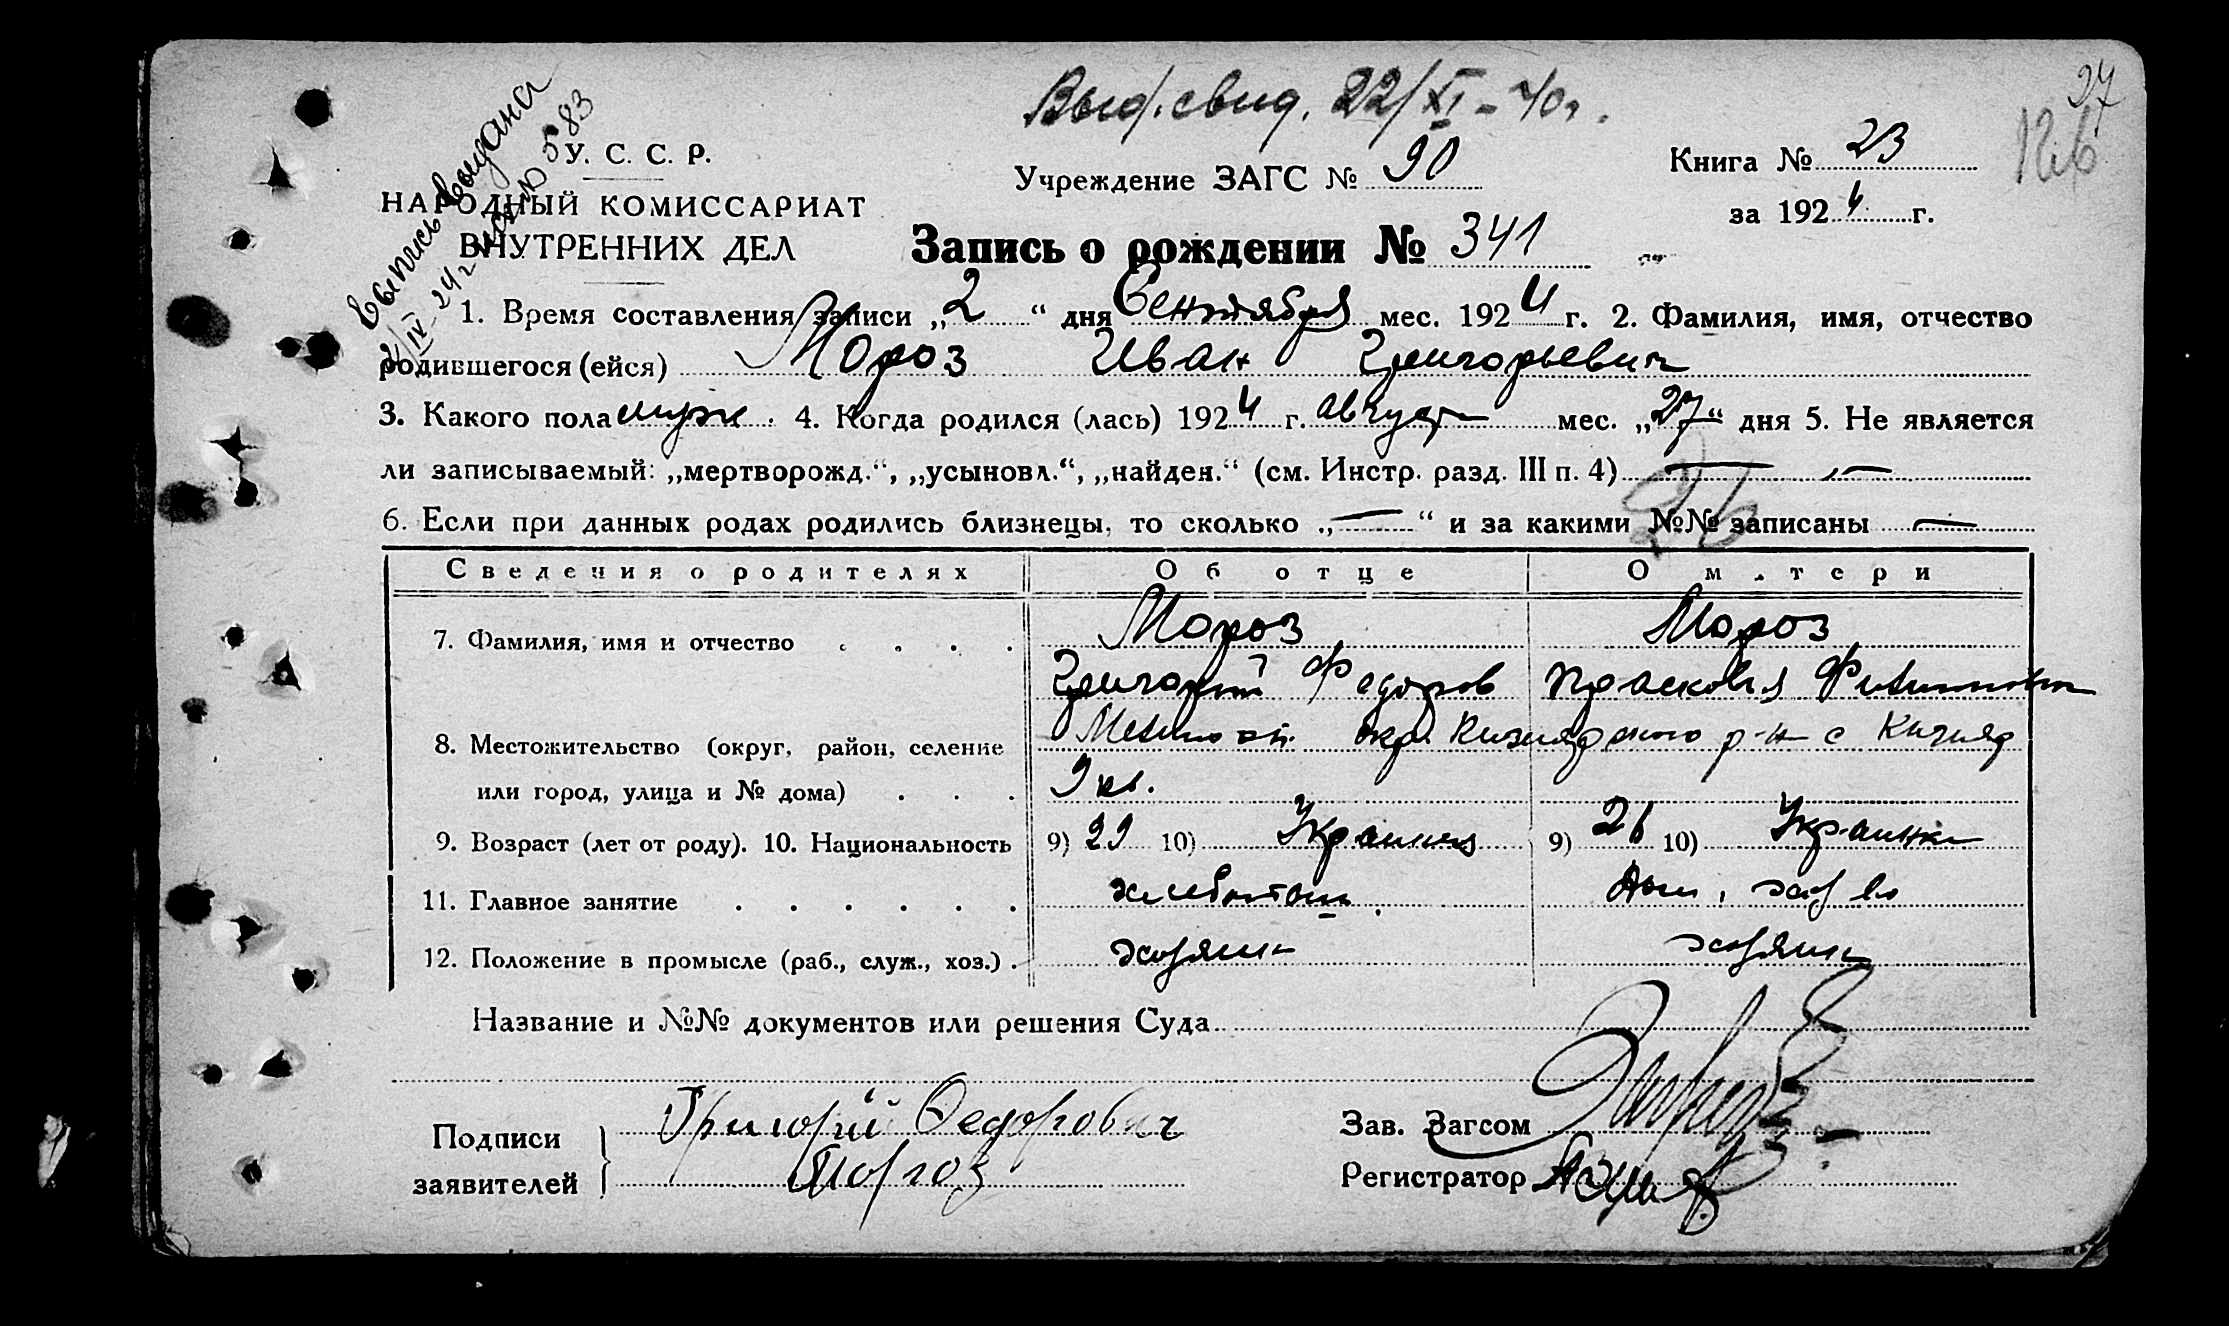 27
126
Выд. свид. 22/XI-40г.
Выпись выдана
2/IV 24г 583
У. С. С. Р.
НАРОДНЫЙ КОМИССАРИАТ
ВНУТРЕННИХ ДЕЛ
Учреждение ЗАГС № 90
Книга № 23
за 1924 г.
Запись о рождении № 341
1. Время составления записи „2“ дня Сентября мес. 1924 г. 2. Фамилия, имя, отчество
родившегося (ейся) Мороз Иван Григорьевич
3. Какого пола муж. 4. Когда родился (лась) 1924 г. август мес. „27“ дня 5. Не является
ли записываемый: „мертворожд.“, „усыновл.“, „найден.“ (см. Инстр. разд. III п. 4) — —
26
6. Если при данных родах родились близнецы, то сколько „—“ и за какими №№ записаны —
Сведения о родителях Об отце О матери
7. Фамилия, имя и отчество . . . . Мороз Мороз
Григорий Федоров Прасковия
8. Местожительство (округ, район, селение окр. р-н с
или город, улица и № дома) . . . 9 кв.
9. Возраст (лет от роду). 10. Национальность 9) 29 10) Украинец 9) 26 10) Украинка
11. Главное занятие . . . . . . хлебопаш. Дом. хоз во
12. Положение в промысле (раб., служ., хоз.) . хозяин хозяин
Название и №№ документов или решения Суда
Подписи
заявителей
Григорий Федорович
Мороз
Зав. Загсом
Регистратор